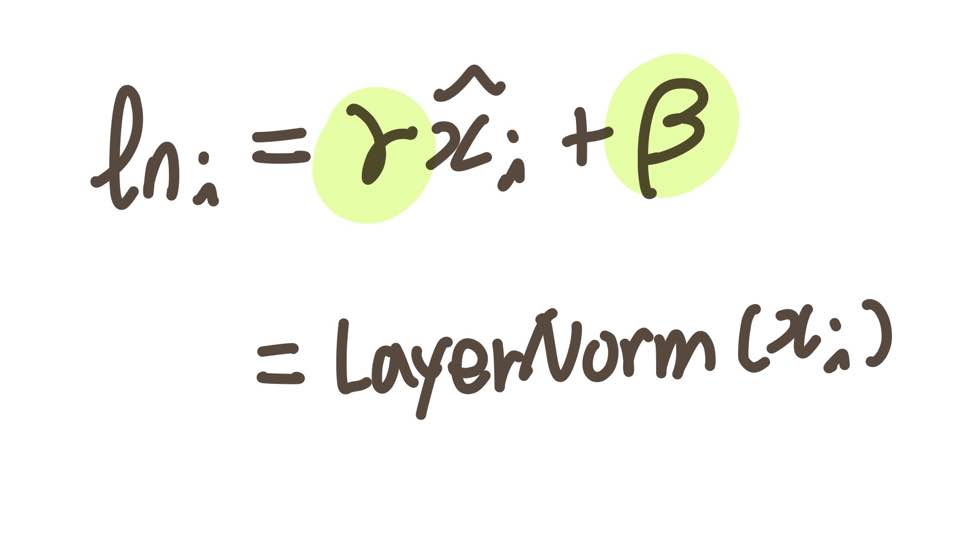 lnᵢ = γx̂ᵢ + β
= LayerNorm (xᵢ)